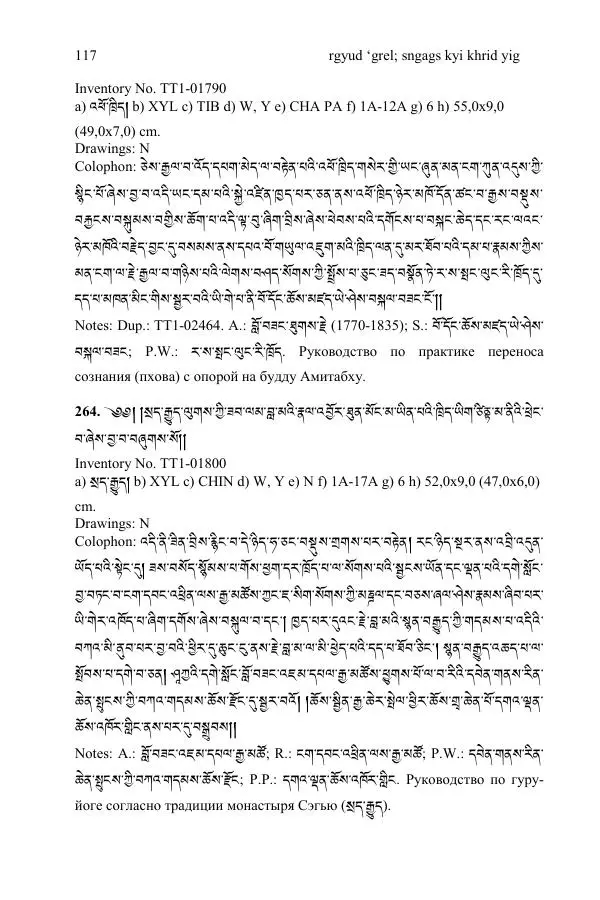 117 rgyud ‘grel; sngags kyi khrid yig
Inventory No. TT1-01790
a) འཕོ་ཁྲིད། b) XYL c) TIB d) W, Y e) CHA PA f) 1A-12A g) 6 h) 55,0x9,0
(49,0x7,0) cm.
Drawings: N
Colophon: ཅེས་རྒྱལ་བ་འོད་དཔག་མེད་ལ་བརྟེན་པའི་འཕོ་ཁྲིད་གསེར་གྱི་ཡང་ཞུན་མན་ངག་ཀུན་འདུས་ཀྱི་
སྙིང་པོ་ཞེས་བྱ་བ་འདི་ཡང་དམ་པའི་སྐྱེ་འཛིན་ཁྱད་པར་ཅན་ནས་འཕོ་ཁྲིད་ཉེར་མཁོ་དོན་ཚང་བ་རྒྱས་བསྡུས་
བརྐྱངས་བསྐུམས་བགྱིས་ཆོག་པ་འདི་ལྟ་བུ་ཞིག་བྲིས་ཞེས་ཕེབས་པའི་དགོངས་པ་བསྐང་ཆེད་དང་རང་ལའང་
ཉེར་མཁོའི་བརྗེད་བྱང་དུ་བསམས་ནས་དཔའ་བོ་གཡུལ་འཇུག་མའི་ཁྲིད་ལན་དུ་མར་ཐོབ་པའི་དམ་པ་རྣམས་ཀྱིས་
མན་ངག་ལ་རྗེ་རྒྱལ་བ་གཉིས་པའི་ལེགས་བཤད་སོགས་ཀྱི་སྤྲོས་པ་ཅུང་ཟད་བསྣོན་ཏེ་ར་ས་སྤང་ལུང་རི་ཁྲོད་དུ་
དད་པ་མཁན་མིང་གིས་སྦྱར་བའི་ཡི་གེ་པ་ནི་བོ་དོང་ཆོས་མཛད་ཡེ་ཤེས་བསྐལ་བཟང་ངོ་།།
Notes: Dup.: TT1-02464. A.: བློ་བཟང་ཐུགས་རྗེ (1770-1835); S.: བོ་དོང་ཆོས་མཛད་ཡེ་ཤེས་
བསྐལ་བཟང; P.W.: ར་ས་སྤང་ལུང་རི་ཁྲོད. Руководство по практике переноса
сознания (пхова) с опорой на будду Амитабху.
264. ༄༅། །སྲད་རྒྱུད་ལུགས་ཀྱི་ཟབ་ལམ་བླ་མའི་རྣལ་འབྱོར་ཐུན་མོང་མ་ཡིན་པའི་ཁྲིད་ཡིག་ཙིནྟ་མ་ནིའི་ཕྲེང་
བ་ཞེས་བྱ་བ་བཞུགས་སོ།།
Inventory No. TT1-01800
a) སྲད་རྒྱུད། b) XYL c) CHIN d) W, Y e) N f) 1A-17A g) 6 h) 52,0x9,0 (47,0x6,0)
cm.
Drawings: N
Colophon: འདི་ནི་ཟིན་བྲིས་རྙིང་བ་དེ་ཉིད་ཧ་ཅང་བསྡུས་གྲགས་པར་བརྟེན། རང་ཉིད་སྔར་ནས་འབྲི་འདུན་
ཡོད་པའི་སྟེང་དུ། ཟས་བསོད་སྙོམས་པ་གོས་ཕྱག་དར་ཁྲོད་པ་ལ་སོགས་པའི་སྦྱངས་ཡོན་དང་ལྡན་པའི་དགེ་སློང་
བྱ་བཏང་བ་ངག་དབང་འཕྲིན་ལས་རྒྱ་མཚོས་ཀྱང་ཇ་སིག་སོགས་ཀྱི་མཎྜལ་དང་བཅས་ཞལ་ཤེས་རྣམས་ཞིབ་པར་
ཡི་གེར་འཁོད་པ་ཞིག་དགོས་ཞེས་བསྐུལ་བ་དང༌། ཁྱད་པར་དུའང་རྗེ་བླ་མའི་སྙན་བརྒྱུད་ཀྱི་གདམས་པ་འདིའི་
བཀའ་མི་ནུབ་པར་བྱ་བའི་ཕྱིར་དུ་ཆུང་ངུ་ནས་རྗེ་བླ་མ་ལ་མི་ཕྱེད་པའི་དད་པ་ཐོབ་ཅིང་། སྙན་བརྒྱུད་འཆད་པ་ལ་
སྤོབས་པ་དགེ་བ་ཅན། ཤཱཀྱའི་དགེ་སློང་བློ་བཟང་འཇམ་དཔལ་རྒྱ་མཚོས་ཕྱུགས་པོ་ལ་བ་རིའི་དབེན་གནས་རིན་
ཆེན་སྤུངས་ཀྱི་བཀའ་གདམས་ཆོས་རྫོང་དུ་སྦྱར་བའོ། །ཆོས་སྦྱིན་རྒྱ་ཆེར་སྤེལ་ཕྱིར་ཆོས་གྲྭ་ཆེན་པོ་དགའ་ལྡན་
ཆོས་འཁོར་གླིང་ནས་པར་དུ་བསྒྲུབས།།
Notes: A.: བློ་བཟང་འཇམ་དཔལ་རྒྱ་མཚོ; R.: ངག་དབང་འཕྲིན་ལས་རྒྱ་མཚོ; P.W.: དབེན་གནས་རིན་
ཆེན་སྤུངས་ཀྱི་བཀའ་གདམས་ཆོས་རྫོང; P.P.: དགའ་ལྡན་ཆོས་འཁོར་གླིང. Руководство по гуру-
йоге согласно традиции монастыря Сэгью (སྲད་རྒྱུད).